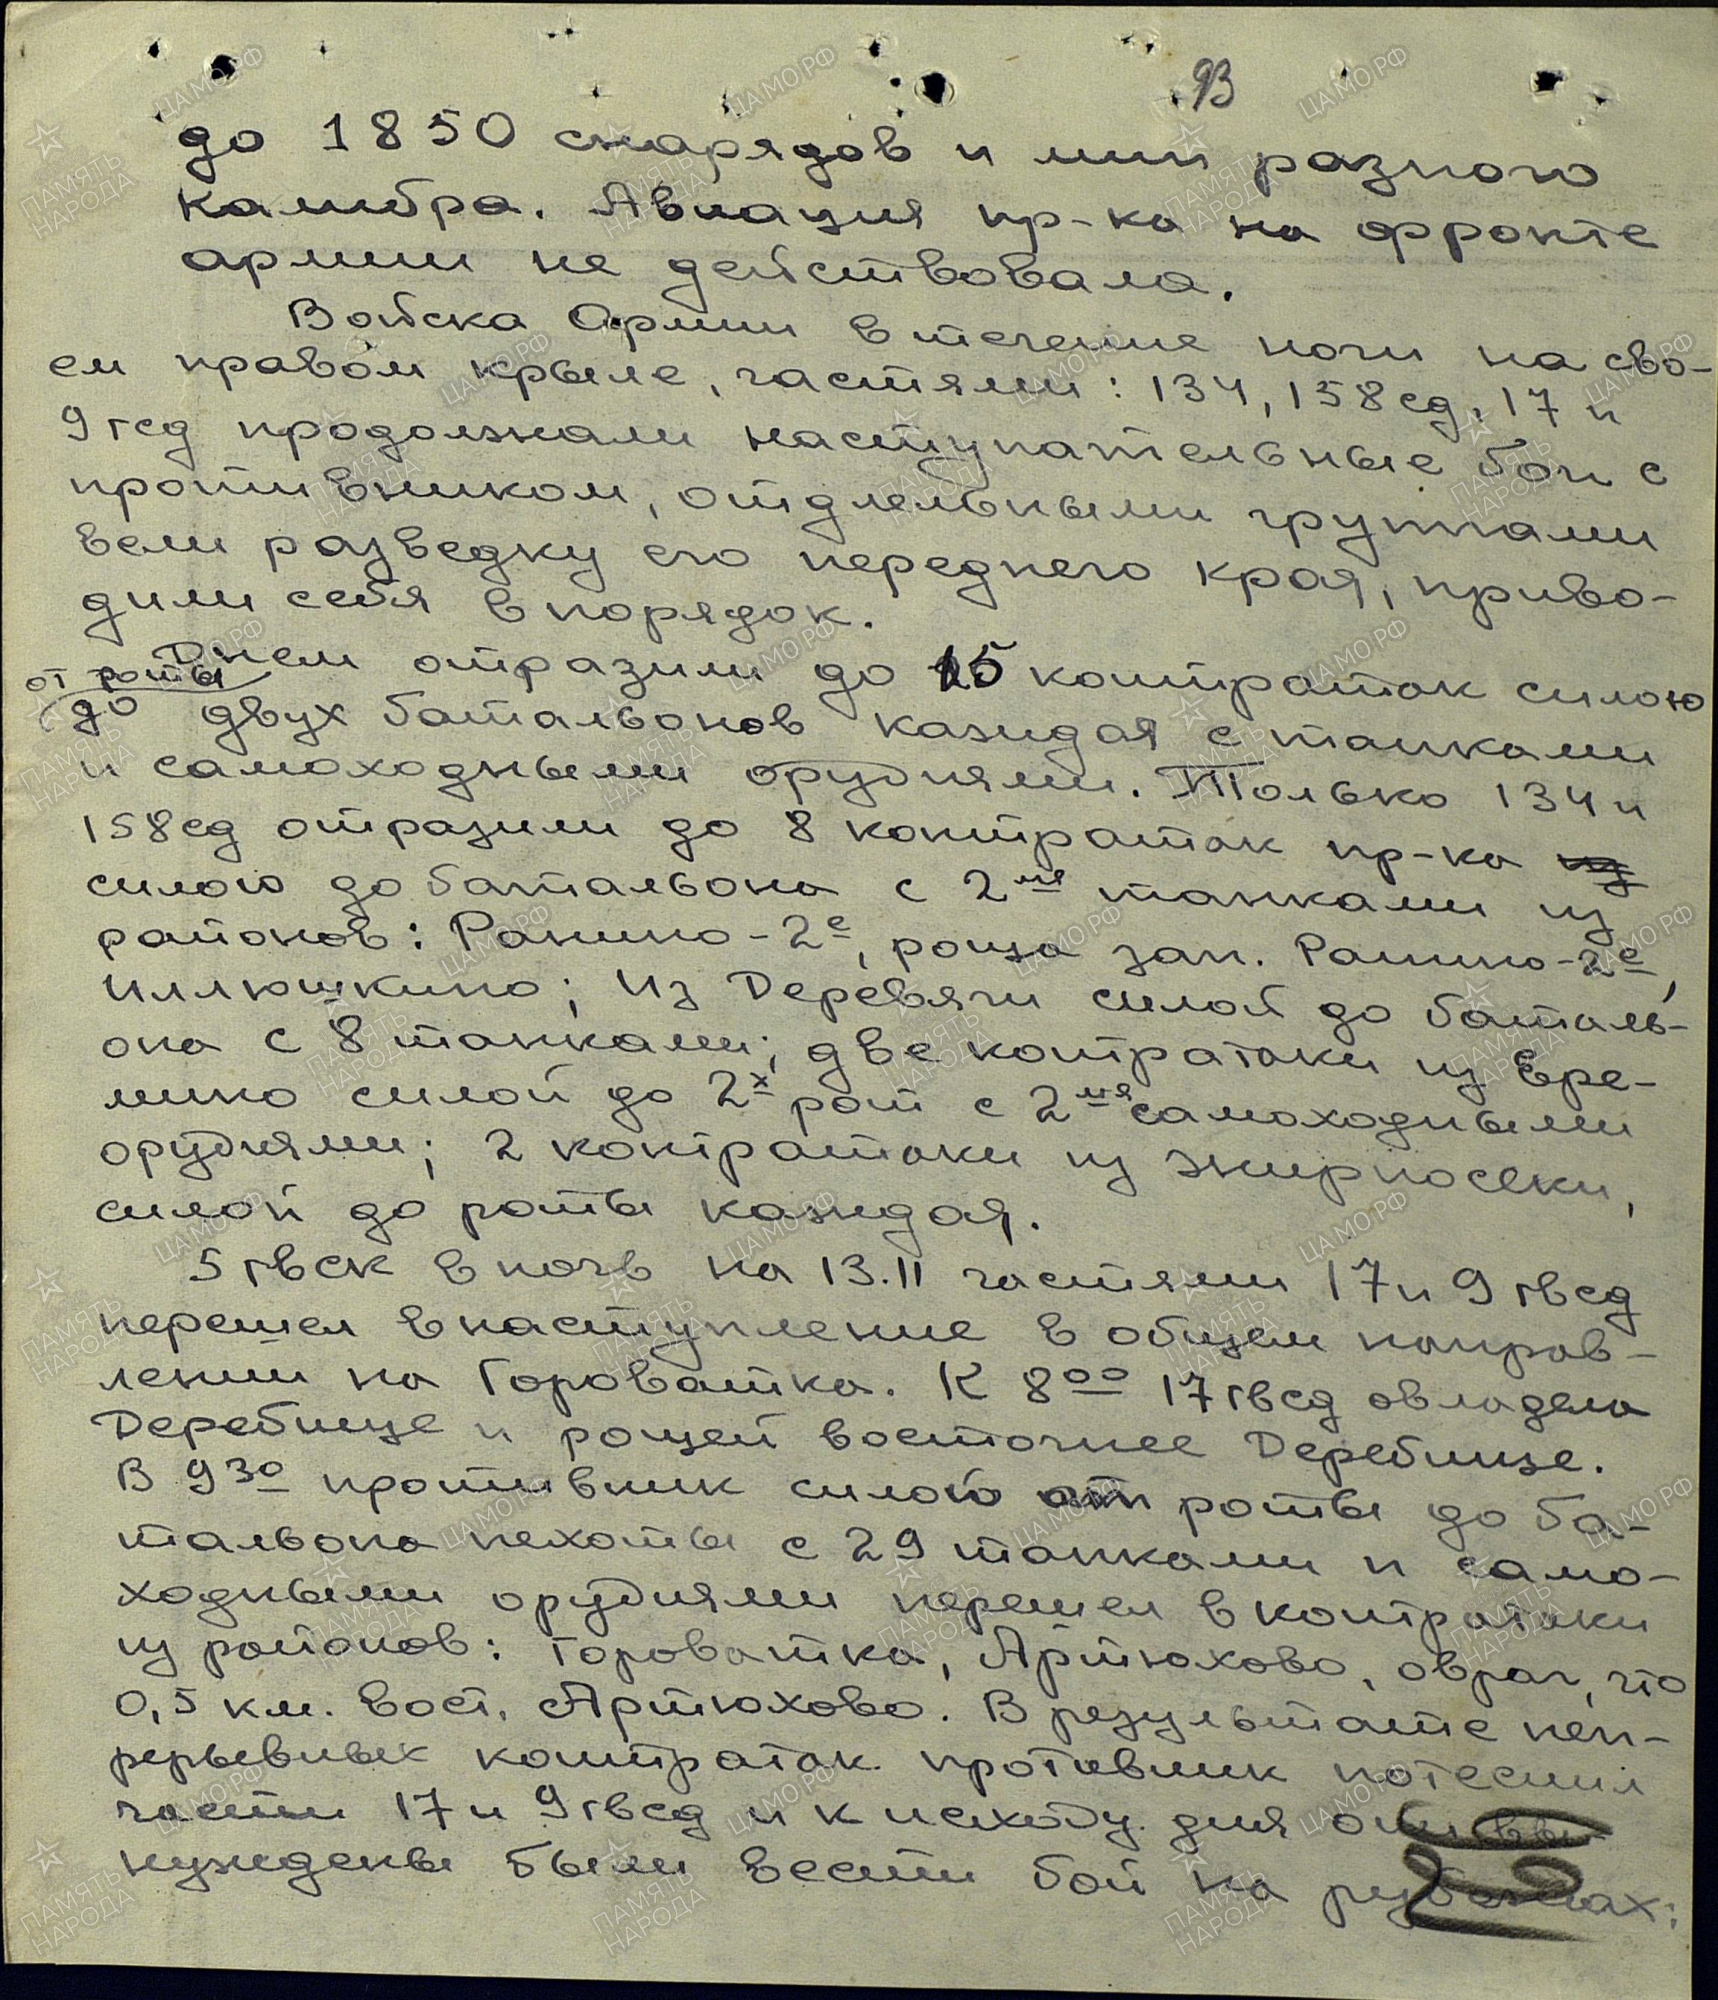 93
до 1850 снарядов и мин разного
калибра. Авиация пр-ка на фронте
армии не действовала.
Войска Армии в течение ночи на сво-
ем правом крыле, частями: 134, 158 сд, 17 и
9 гсд продолжали наступательные бои с
противником, отдлельными группами
вели разведку его переднего края, приво-
дили себя в порядок.
Днем отразили до 15 контратак силою
от роты
до двух батальонов каждая с танками
и самоходными орудиями. Только 134 и
158 сд отразили до 8 контратак пр-ка из
силою до батальона с 2мя танками из
районов: Ранино-2е, роща зап. Ранино-2е,
Иллюшкино; Из Деревяги силой до баталь-
она с 8 танками; две контратаки из Ере-
мино силой до 2х рот с 2мя самоходными
орудиями; 2 контратаки из Жирносеки,
силой до роты каждая.
5 гвск в ночь на 13.II частями 17 и 9 гвсд
перешел в наступление в общем направ-
лении на Гороватка. К 8 00 17 гвсд овладела
Деребище и рощей восточнее Деребище.
В 9 30 противник силою от роты до ба-
тальона пехоты с 29 танками и само-
ходными орудиями перешел в контратаки
из районов: Гороватка, Артюхово, овраг, что
0,5 км. вост. Артюхово. В результате неп-
рерывных контратак противник потеснил
части 17 и 9 гвсд и к исходу дня они вы-
нуждены были вести бой на рубежах:
ПАМЯТЬ НАРОДА
ЦАМО.РФ